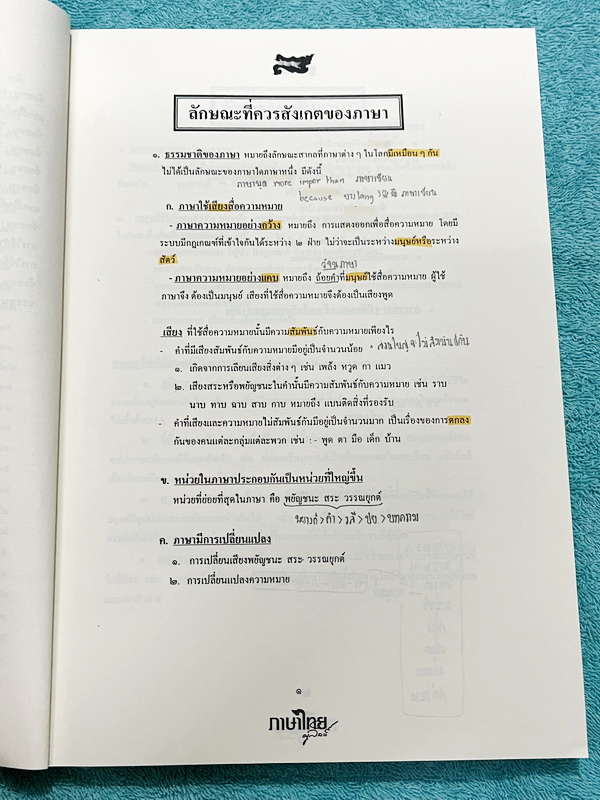 ลักษณะที่ควรสังเกตของภาษา
๑. ธรรมชาติของภาษา หมายถึงลักษณะสากลที่ภาษาต่าง ๆ ในโลกมีเหมือน ๆ กัน
ไม่ได้เป็นลักษณะของภาษาใดภาษาหนึ่ง มีดังนี้
ภาษาพูด more impor than ภาษาเขียน
because บาง lang ภาษาเขียน
ก. ภาษาใช้เสียงสื่อความหมาย
- ภาษาความหมายอย่างกว้าง หมายถึง การแสดงออกเพื่อสื่อความหมาย โดยมี
ระบบมีกฎเกณฑ์ที่เข้าใจกันได้ระหว่าง ๒ ฝ่าย ไม่ว่าจะเป็นระหว่างมนุษย์หรือระหว่าง
สัตว์
วัจนภาษา
- ภาษาความหมายอย่างแคบ หมายถึง ถ้อยคำที่มนุษย์ใช้สื่อความหมาย ผู้ใช้
ภาษาจึง ต้องเป็นมนุษย์ เสียงที่ใช้สื่อความหมายจึงต้องเป็นเสียงพูด
เสียง ที่ใช้สื่อความหมายนั้นมีความสัมพันธ์กับความหมายเพียงไร
- คำที่มีเสียงสัมพันธ์กับความหมายมีอยู่เป็นจำนวนน้อย * ส่วนใหญ่จะไม่สัมพันธ์กัน
๑. เกิดจากการเลียนเสียงสิ่งต่าง ๆ เช่น เพล้ง หวูด กา แมว
๒. เสียงสระหรือพยัญชนะในคำนั้นมีความสัมพันธ์กับความหมาย เช่น ราบ
นาบ ทาบ ฉาบ สาบ กาบ หมายถึง แบนติดสิ่งที่รองรับ
- คำที่เสียงและความหมายไม่สัมพันธ์กันมีอยู่เป็นจำนวนมาก เป็นเรื่องของการตกลง
กันของคนแต่ละกลุ่มแต่ละพวก เช่น :- พูด ตา มือ เด็ก บ้าน
ข. หน่วยในภาษาประกอบกันเป็นหน่วยที่ใหญ่ขึ้น
หน่วยที่ย่อยที่สุดในภาษา คือ พยัญชนะ สระ วรรณยุกต์
พยางค์ > คำ > วลี > ปย > บทความ
ค. ภาษามีการเปลี่ยนแปลง
๑. การเปลี่ยนเสียงพยัญชนะ สระ วรรณยุกต์
๒. การเปลี่ยนแปลงความหมาย
๑
ภาษาไทย